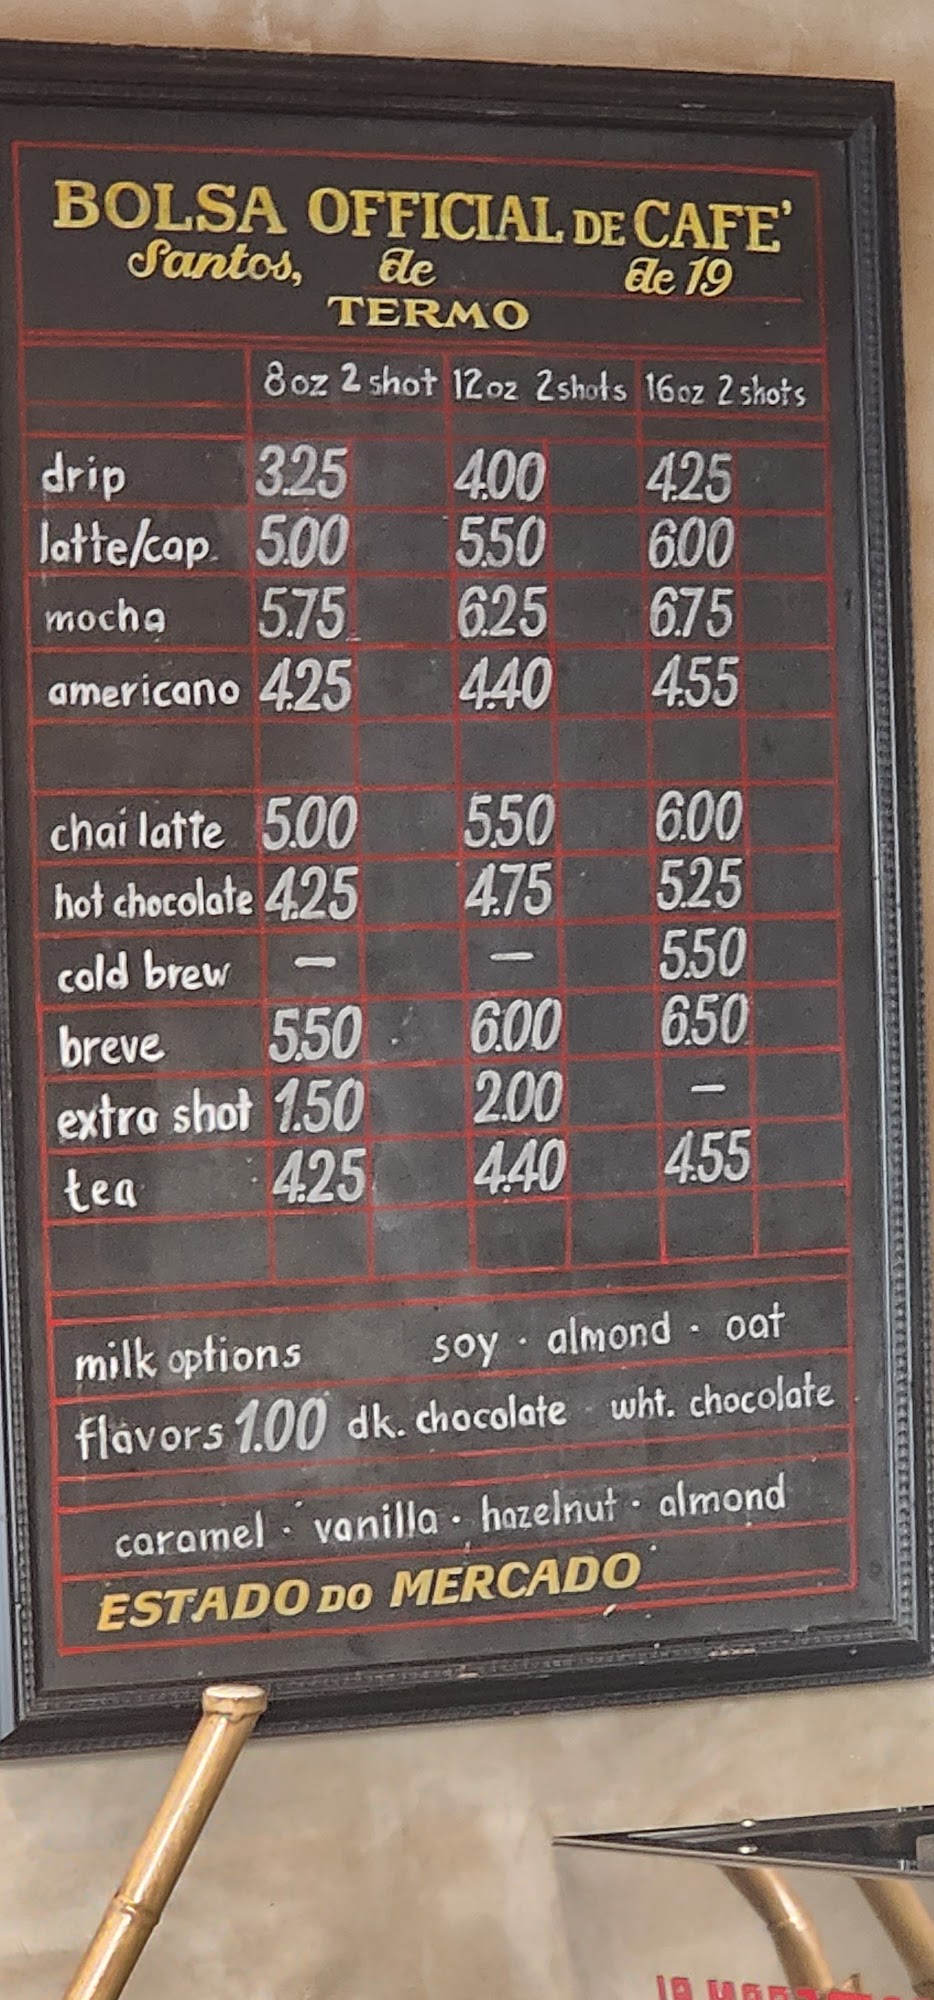 BOLSA OFFICIAL DE CAFE'
Santos, de de 19
TERMO
8oz 2 shot 12oz 2shots 16oz 2 shots
drip 3.25 4.00 4.25
latte/cap. 5.00 5.50 6.00
mocha 5.75 6.25 6.75
americano 4.25 4.40 4.55
chai latte 5.00 5.50 6.00
hot chocolate 4.25 4.75 5.25
cold brew — — 5.50
breve 5.50 6.00 6.50
extra shot 1.50 2.00 —
tea 4.25 4.40 4.55
milk options soy · almond · oat
flavors 1.00 dk. chocolate wht. chocolate
caramel · vanilla · hazelnut · almond
ESTADO DO MERCADO